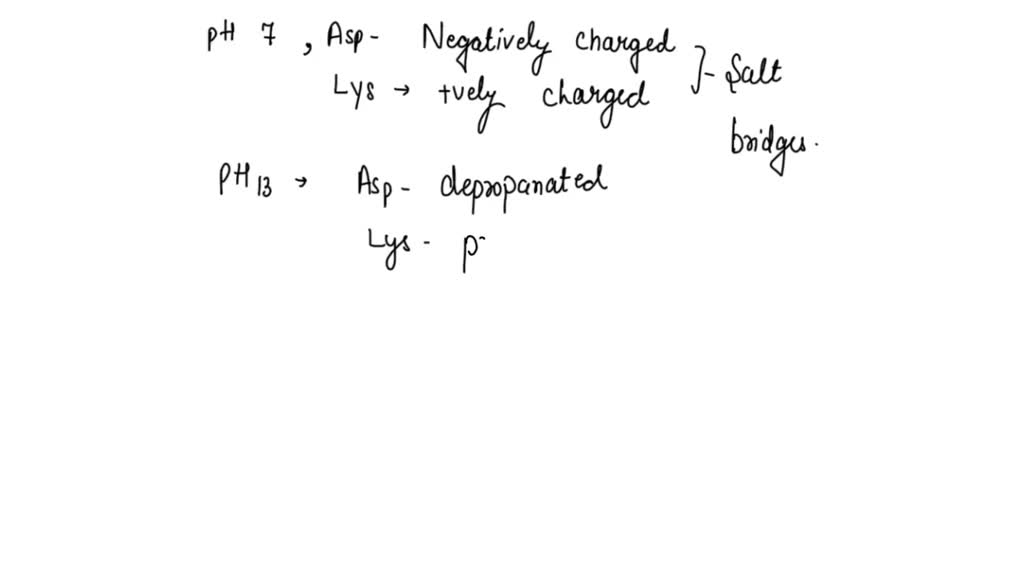 pH 7 , Asp - Negatively charged }- Salt
Lys → +vely charged bridges.
PH 13 → Asp - depropanated
Lys - p